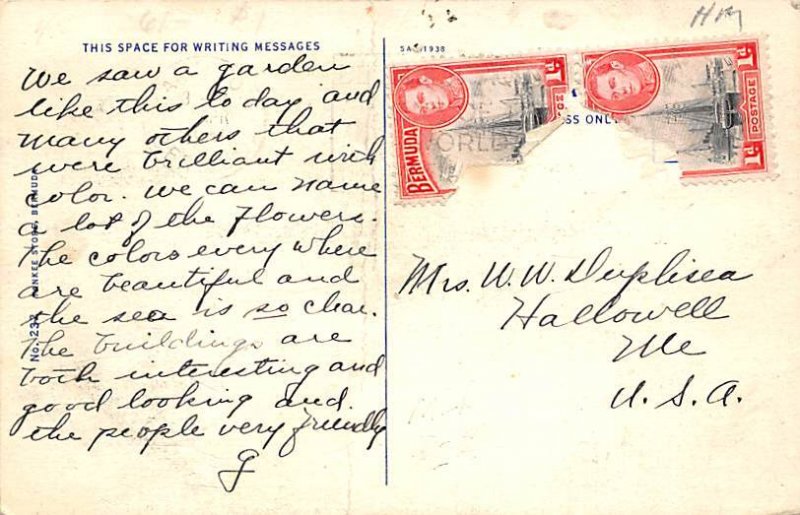 THIS SPACE FOR WRITING MESSAGES
We saw a garden
like this to day and
many others that
were brilliant with
color. We can name
a lot of the Flowers.
The colors every where
are beautiful and
the sea is so clear.
The buildings are
both interesting and
good looking and
the people very friendly
G
No. 237 YANKEE STORE, BERMUDA
SA-1938
HM
BERMUDA
1d
POSTAGE
1d
1d
SS ONLY
ORLD
Mrs. W. W. Duplisea
Hallowell
Me
U. S. A.